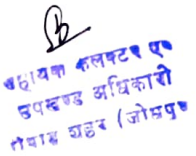 सहायक कलक्टर एवं
उपखण्ड अधिकारी
पीपाड़ शहर (जोधपुर